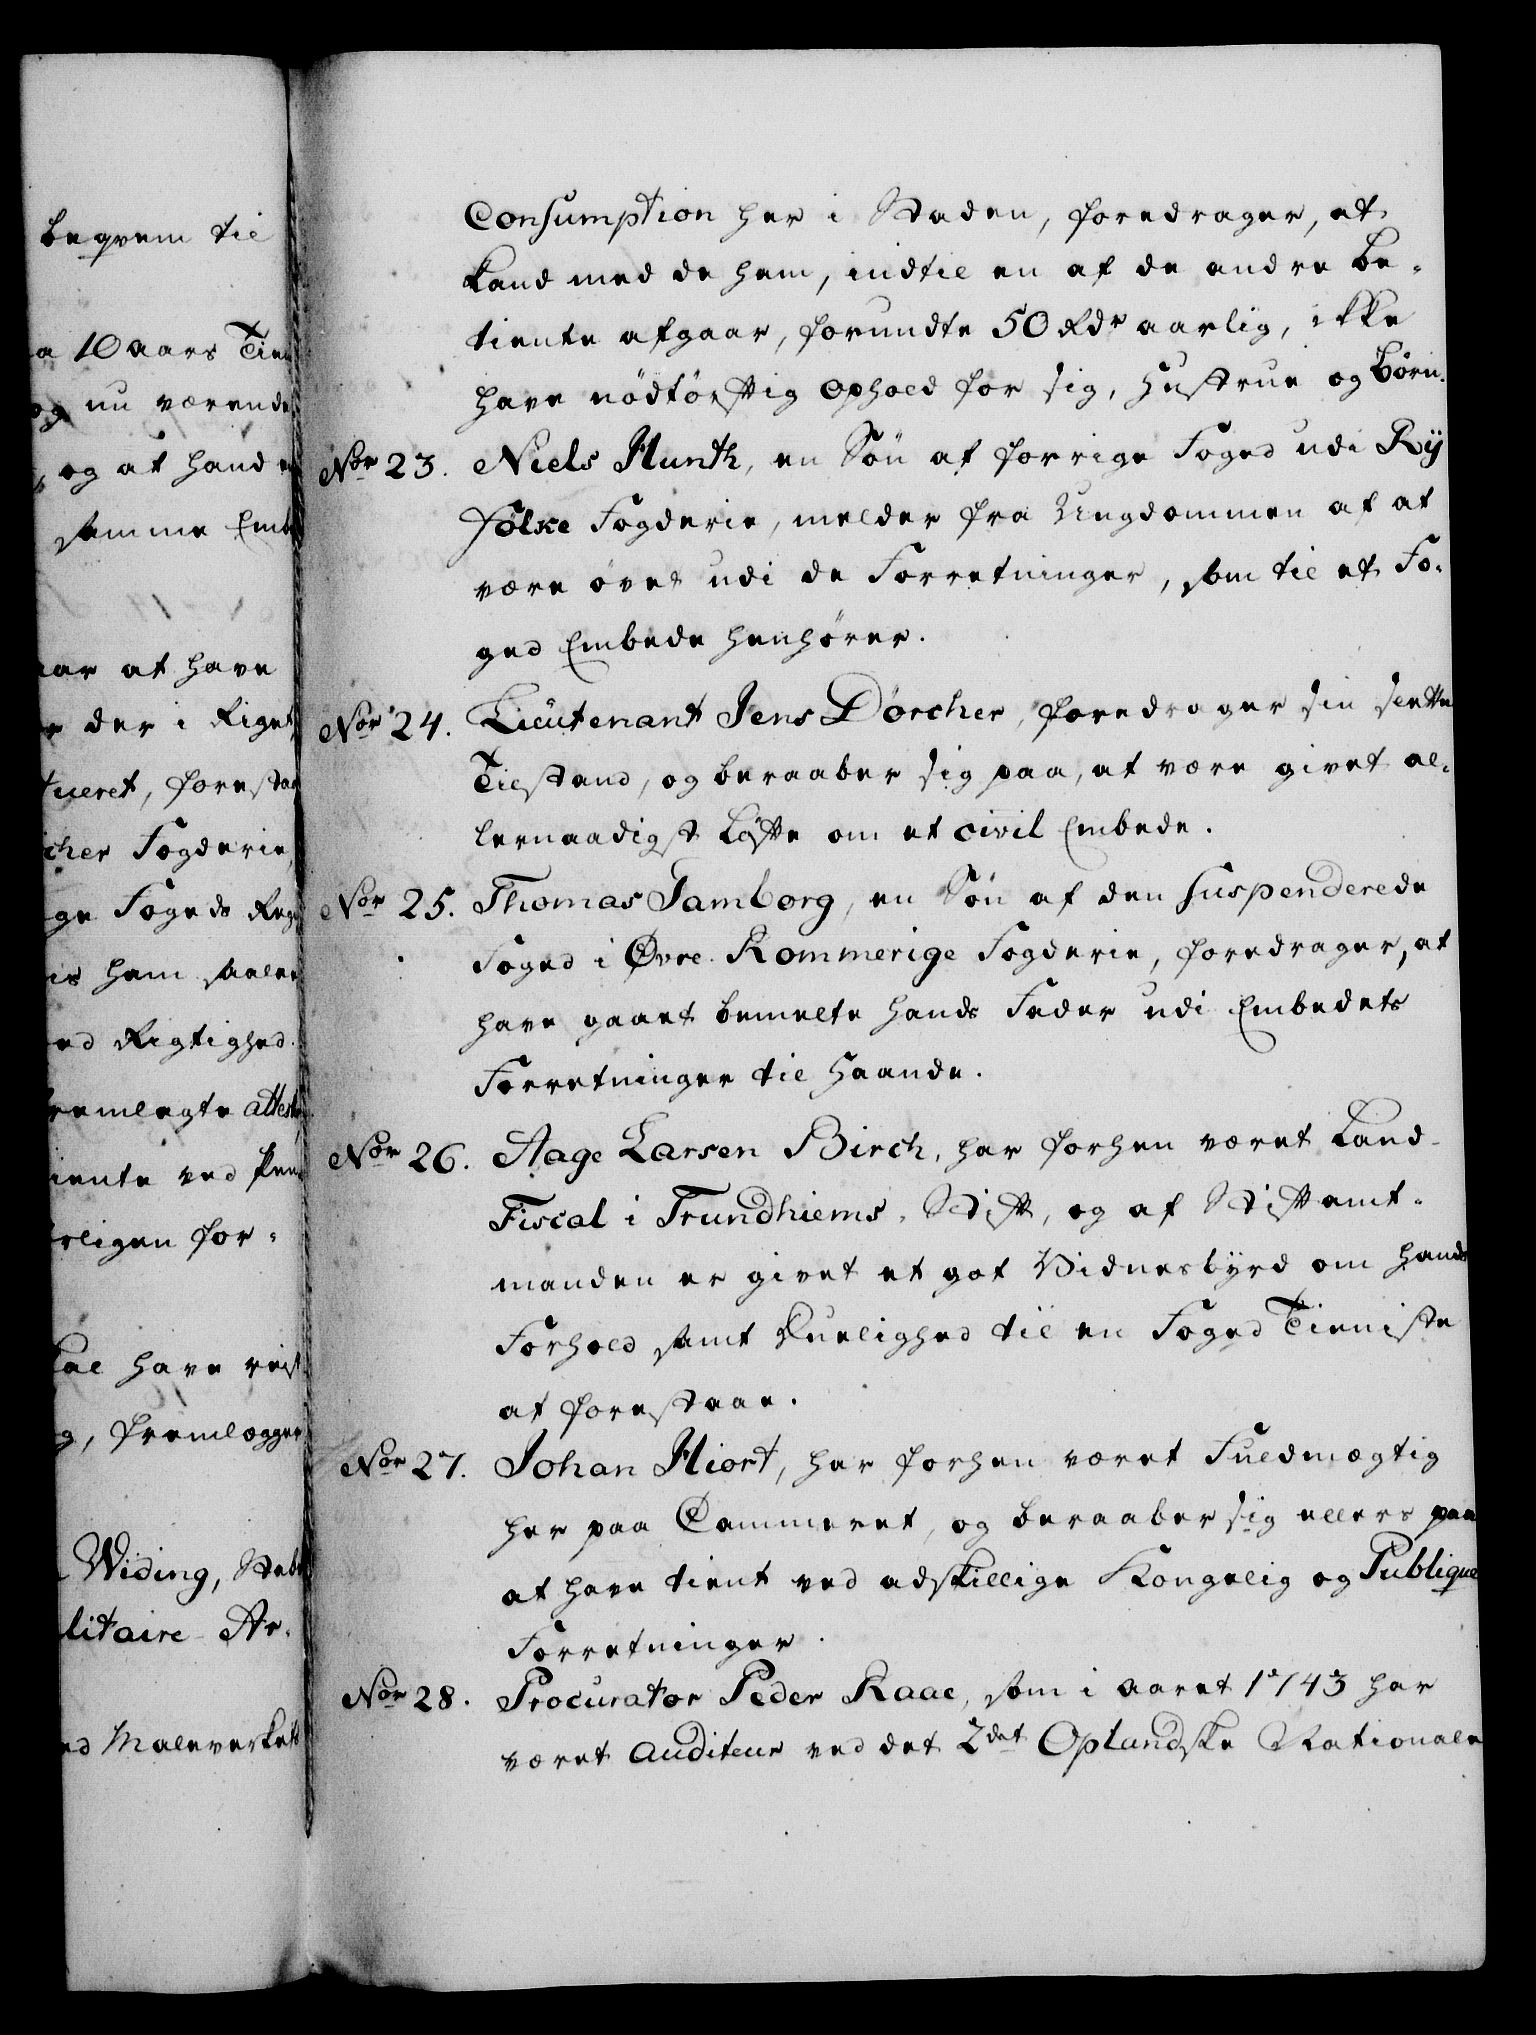 beqvem til
a 10 aars Tien
og nu værende
, og at hand
samme Emb
aar at have
der i Riget
tueret, forestaa
cher Fogderie,
ge Fogeds Reg
is ham saale
ed Rigtighed.
remlagte attest
iente ved
rligen for-
have reist
g, fremlægger
Widing, Stabs
litaire Ar-
ed Maleverkets
Consumption her i Staden, foredrager, at
kand med de ham, indtil en af de andre be-
tiente afgaar, forundte 50 Rdr aarlig, ikke
have nödtörftig ophold for sig, Hustrue og Börn.
Nor 23. Niels Munth, en Sön af forrige Foged udi Rÿ
fölke Fogderie, melder fra Ungdommen af at
være övet udi de Forretninger, som til et Fo-
ged Embede henhörer.
Nor 24. Lieutenant Jens Dörcher, foredrager sin slette
Tilstand, og beraaber sig paa, at være givet al-
lernaadigst Löfte om et civil Embede.
Nor 25. Thomas Jamborg, en Sön af den suspenderede
Foged i Øvre Rommerige Fogderie, foredrager, at
have gaaet bemelte hands Fader udi Embedets
Forretninger til Haande.
Nor 26. Aage Larsen Birch, har forhen været Land-
Fiscal i Trundhiems Stift, og af Stiftamt-
manden er givet et got Vidnesbÿrd om hands
Forhold samt Duelighed til en Foged Tieniste
at forestaae.
Nor 27. Johan Hiort, har forhen været Fuldmægtig
her paa Cammeret, og beraaber sig ellers paa
at have tient ved adskillige Kongelig og Publique
Forretninger.
Nor 28. Procurator Peder Raae, som i aaret 1743 har
været Auditeur ved det 2det Oplandske Nationale